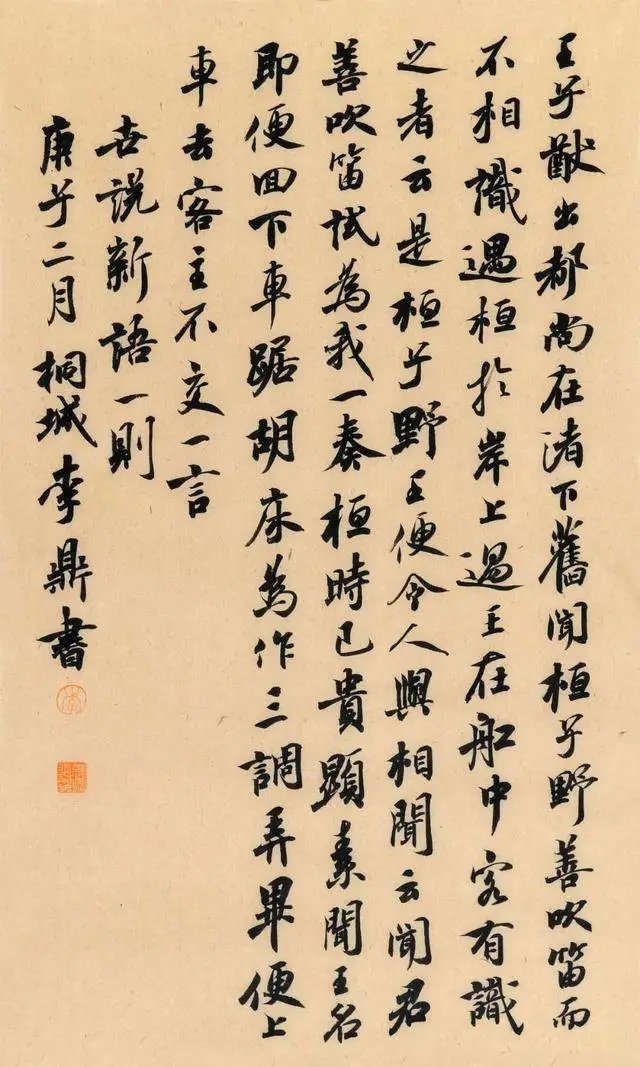 王子猷出都尚在渚下舊聞桓子野善吹笛而
不相識遇桓於岸上過王在船中客有識
之者云是桓子野王便令人與相聞云聞君
善吹笛試為我一奏桓時已貴顯素聞王名
即便回下車踞胡床為作三調弄畢便上
車去客主不交一言
世說新語一則
庚子二月桐城李鼎書